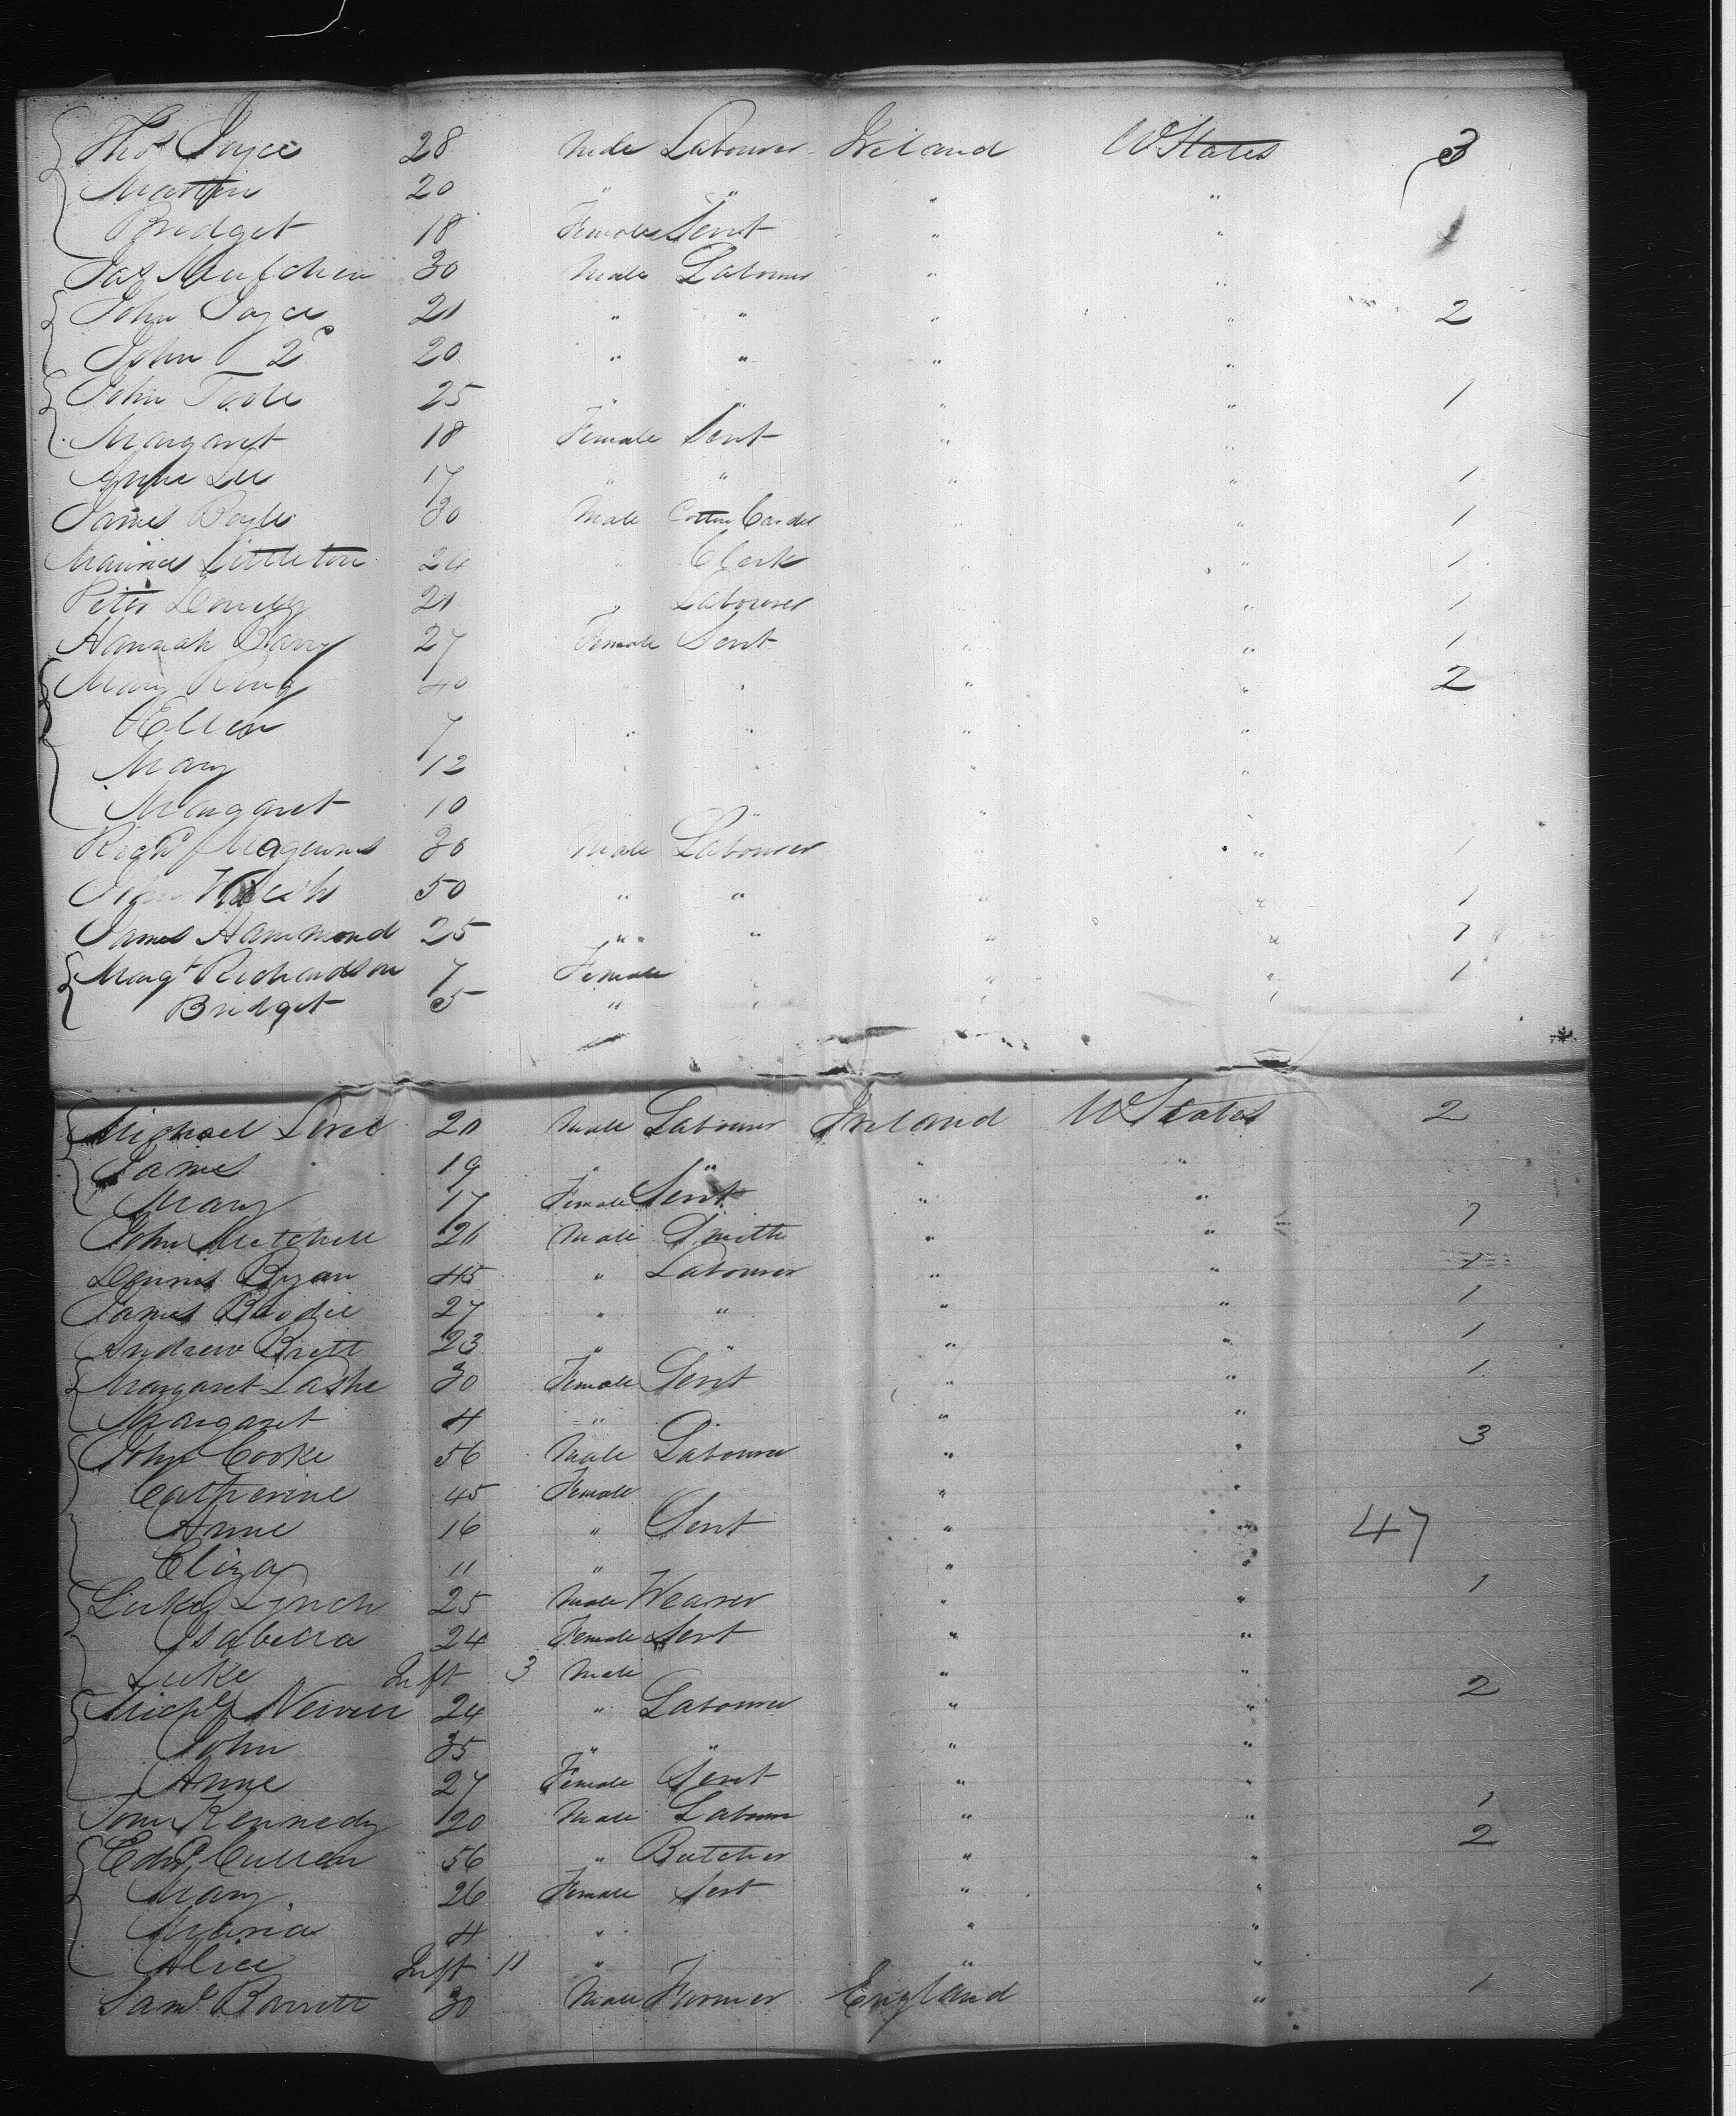 Thos Joyce 28 Male Labourer Ireland U States 3
Martin 20 " " " "
Bridget 18 Female Servt " " 1
Jas 30 Male Labourer " "
John Joyce 21 " " " " 2
John 2d 20 " " " "
John Toole 25 " " " " 1
Margaret 18 Female Servt " "
Anne Lee 17 " " " " 1
James Boyle 30 Male Cotton Carder " " 1
Maurice Littleton 24 " Clerk " " 1
Peter 21 " Labourer " 1
Hannah Barry 27 Female Servt " " 1
Mary King 40 " " " " 2
Ellen 7 " " " "
Mary 12 " " " "
Margaret 10 " " "
Richd 30 Male Labourer " " 1
John Walsh 50 " " " " 1
James Hammond 25 " " " " 1
Margt Richardson 7 Female " " " 1
Bridget 5 " " " "
Michael 20 Male Labourer Ireland U States 2
James 19 " " " "
Mary 17 Female Servt " "
John Mitchell 21 Male Smith " " 1
Dennis Ryan 45 " Labourer " " 1
James Brodie 27 " " " " 1
Andrew Brett 23 " " " " 1
Margaret Lashe 30 Female Servt " " 1
Margaret 4 " " "
John Cooke 56 Male Labourer " " 3
Catherine 45 Female " "
Anne 16 " Servt " " 47
Eliza 11 " " "
Luke Lynch 25 Male Weaver " " 1
Isabella 24 Female Servt " "
Luke Inft 3 Male " "
Michl 24 " Labourer " " 2
John 35 " " " "
Anne 27 Female Servt " "
Tom Kennedy 20 Male Labour " " 1
Edwd Cullen 56 " Butcher " " 2
Mary 26 Female Servt " "
Maria 4 " " "
Alice Inft 11 " " "
Saml Barrett 30 Male Farmer England " 1